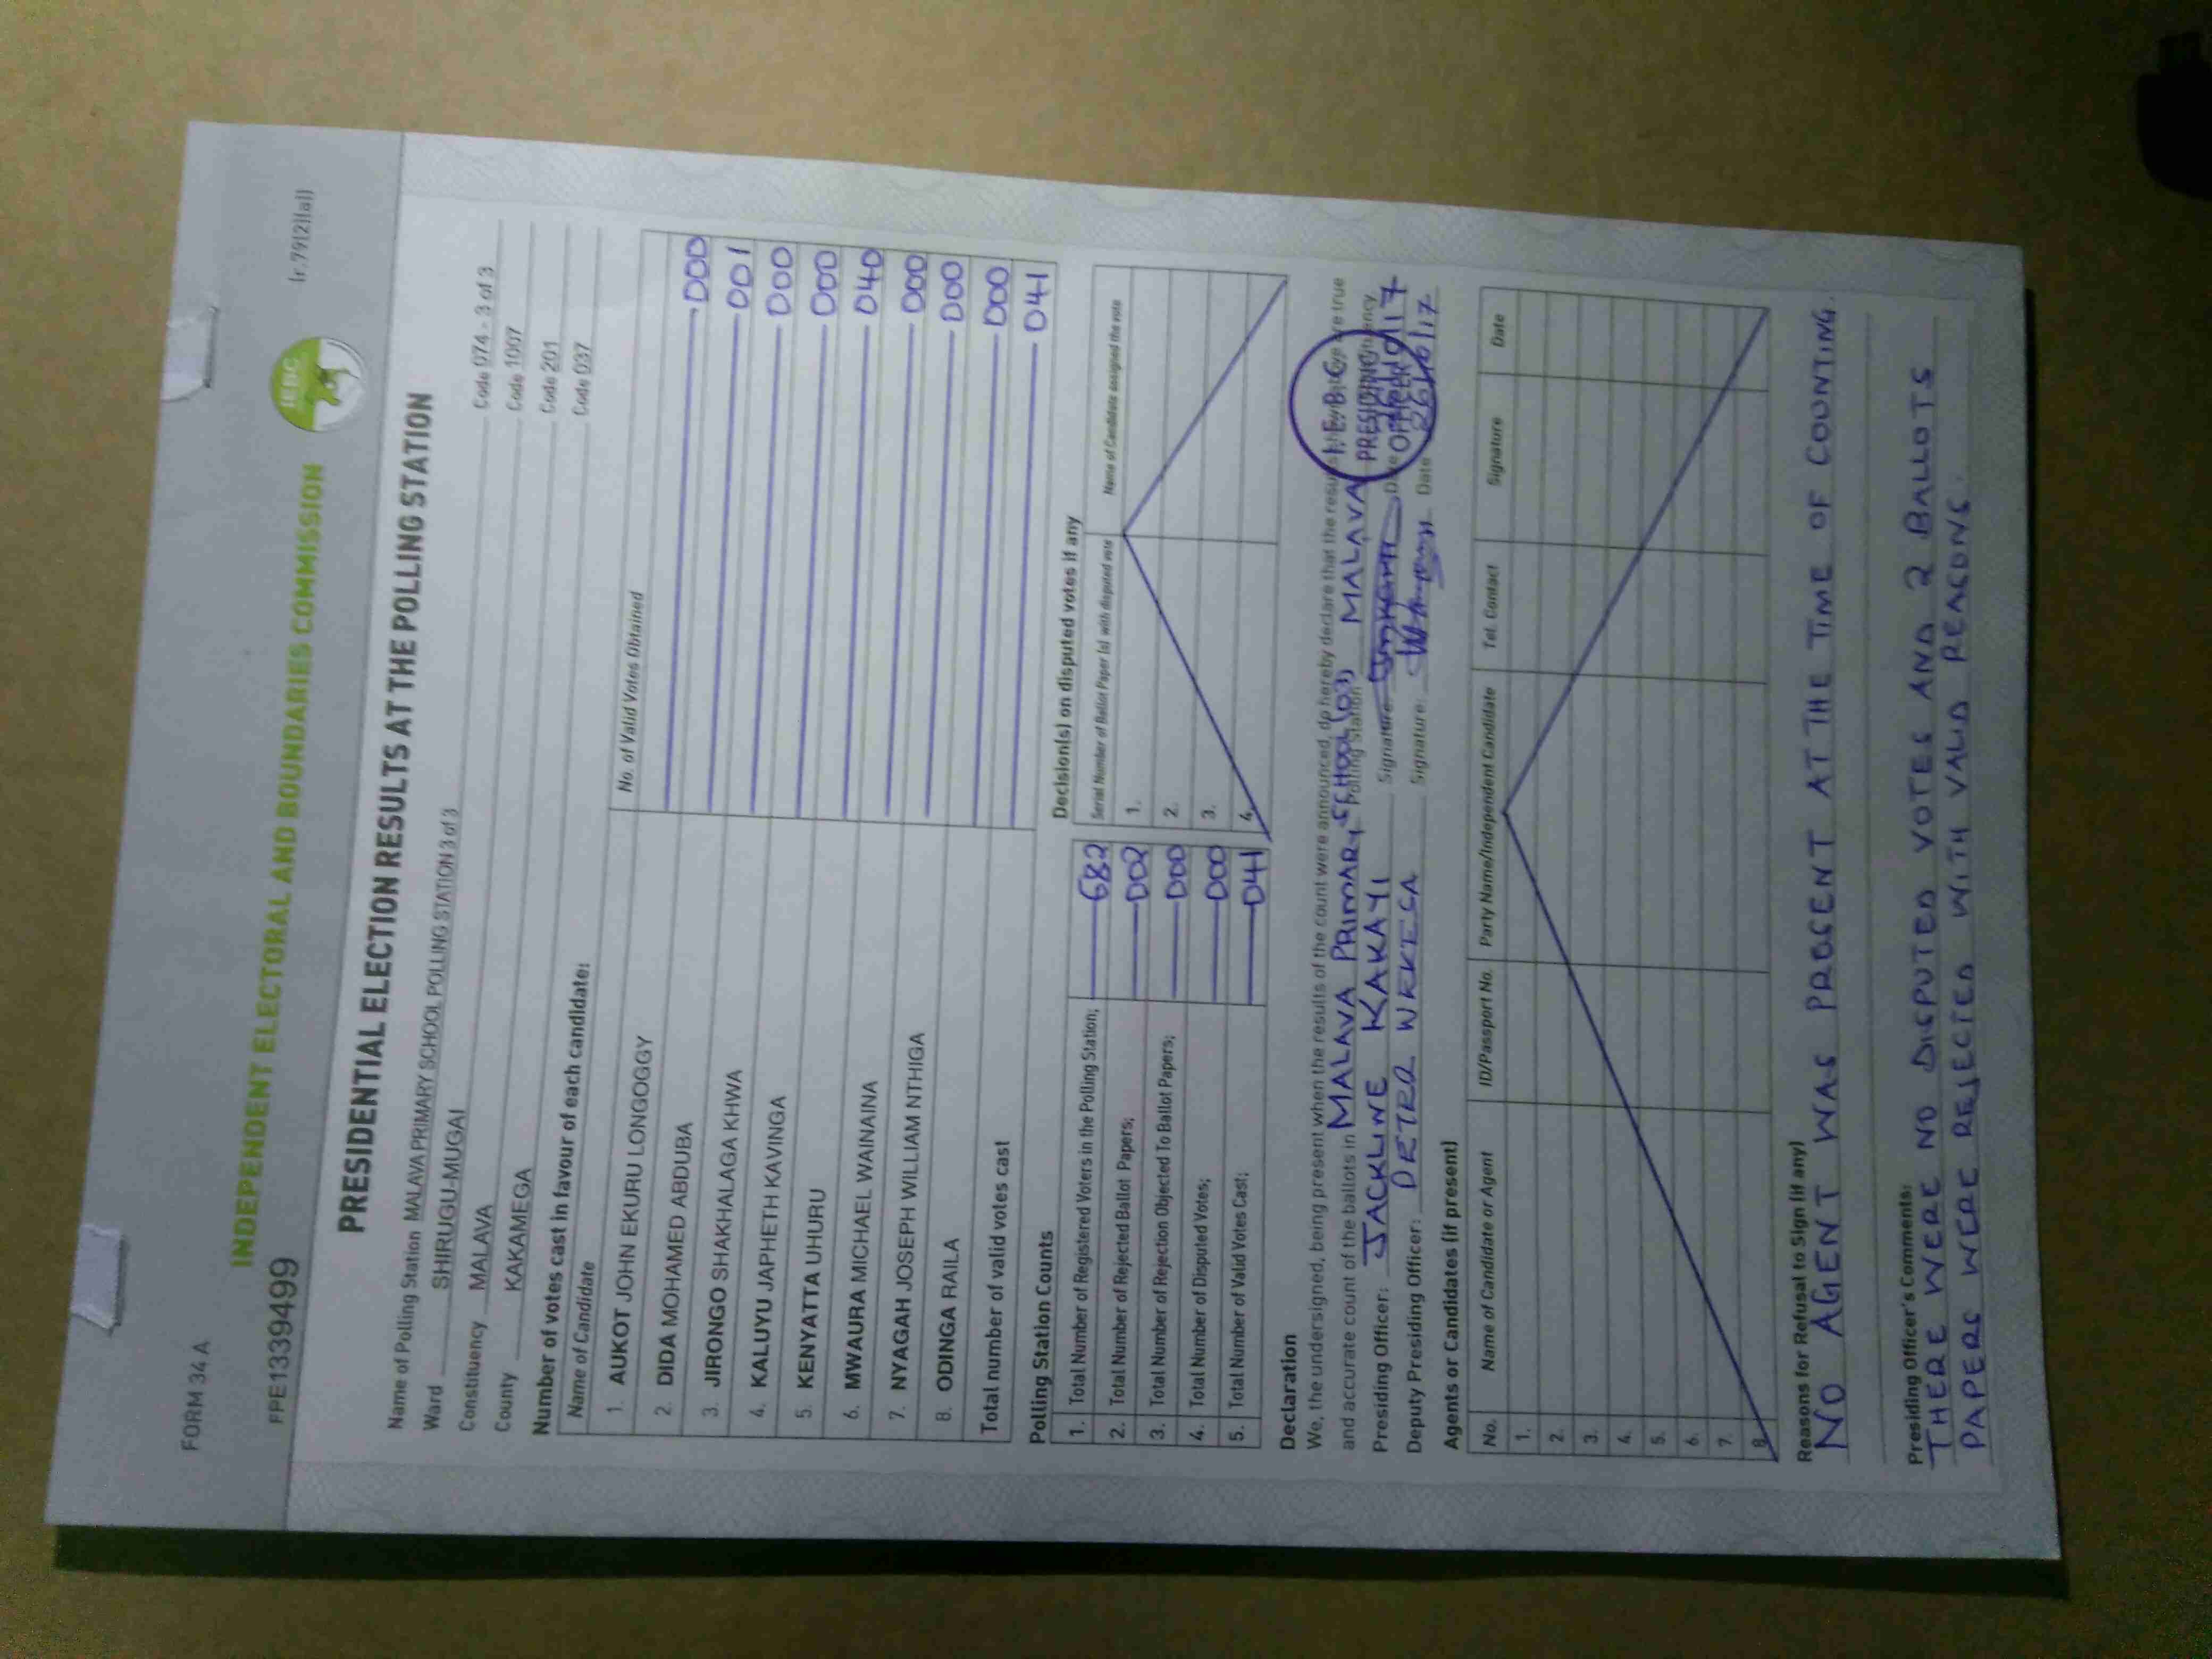 FORM 34 A
lr.79(2)(a)]
IEBC
INDEPENDENT ELECTORAL AND BOUNDARIES COMMISSION
PPE1339499
PRESIDENTIAL ELECTION RESULTS AT THE POLLING STATION
Name of Polling Station MALAVA PRIMARY SCHOOL POLLING STATION 3 of 3 Code 074 - 3 of 3
Ward SHIRUGU-MUGAI Code 1007
Constituency MALAVA Code 201
County KAKAMEGA Code 037
Number of votes cast in favour of each candidate:
Name of Candidate No. of Valid Votes Obtained
1. AUKOT JOHN EKURU LONGOGGY 000
2. DIDA MOHAMED ABDUBA 001
3. JIRONGO SHAKHALAGA KHWA 000
4. KALUYU JAPHETH KAVINGA 000
5. KENYATTA UHURU 040
6. MWAURA MICHAEL WAINAINA 000
7. NYAGAH JOSEPH WILLIAM NTHIGA 000
8. ODINGA RAILA 000
Total number of valid votes cast 041
Polling Station Counts
1. Total Number of Registered Voters in the Polling Station; 682
2. Total Number of Rejected Ballot Papers; 002
3. Total Number of Rejection Objected To Ballot Papers; 000
4. Total Number of Disputed Votes; 000
5. Total Number of Valid Votes Cast; 041
Decision(s) on disputed votes if any
Serial Number of Ballot Paper (s) with disputed vote Name of Candidate assigned the vote
1.
2.
3.
4.
Declaration
We, the undersigned, being present when the results of the count were announced, do hereby declare that the results are true
and accurate count of the ballots in MALAVA PRIMARY SCHOOL (03) Polling Station MALAVA
Presiding Officer: JACKLINE KAKAYI Signature: Date
Deputy Presiding Officer: Signature: Date 26/10/17
I.E.B.C
PRESIDING
OFFICER
Agents or Candidates (if present)
No. Name of Candidate or Agent ID/Passport No. Party Name/Independent Candidate Tel. Contact Signature Date
1.
2.
3.
4.
5.
6.
7.
8.
Reasons for Refusal to Sign (if any)
NO AGENT WAS PRESENT AT THE TIME OF COUNTING.
Presiding Officer's Comments:
THERE WERE NO DISPUTED VOTES AND 2 BALLOTS
PAPERS WERE REJECTED WITH VALID REASONS.